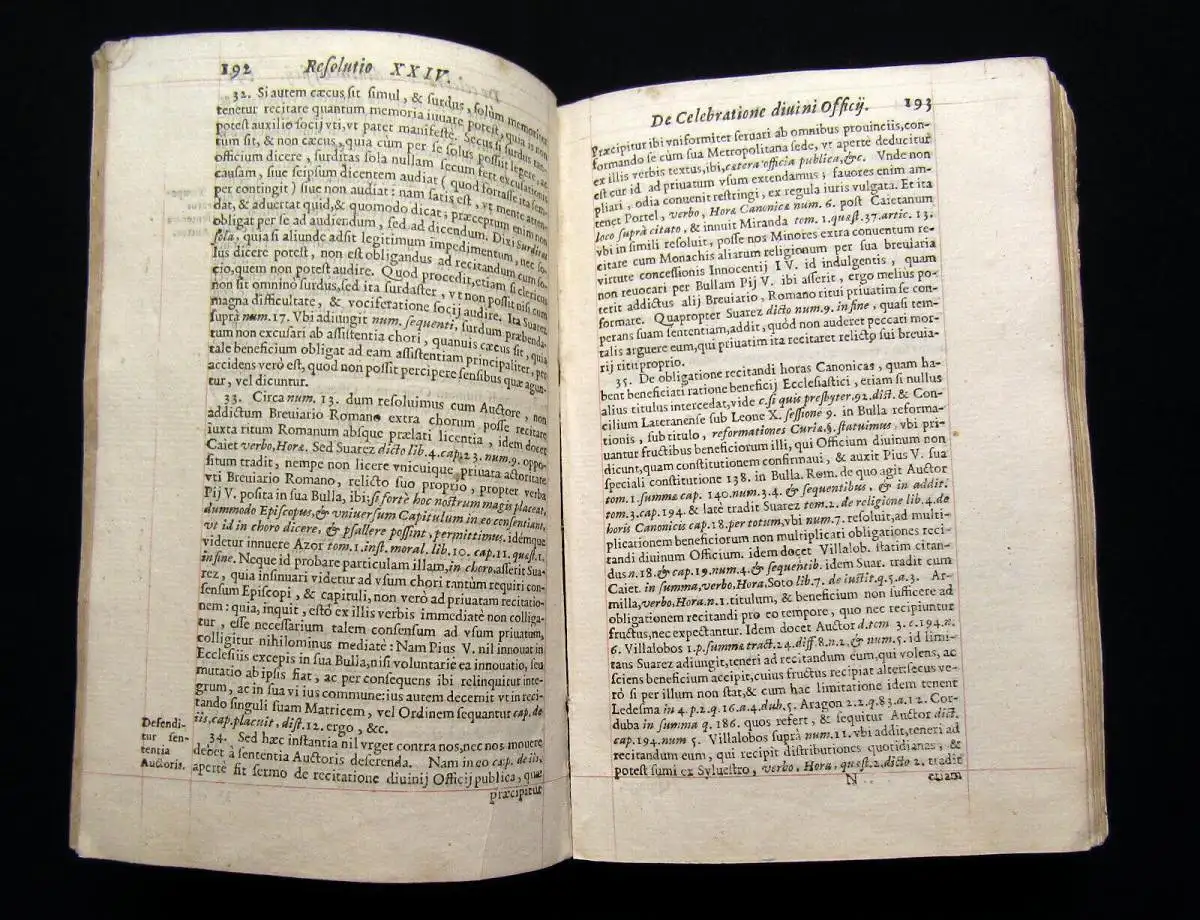 192 Resolutio XXIV.
32. Si autem cæcus sit simul, & surdus, solùm memoriter
tenetur recitare quantum memoria iuuare potest, quia is non
potest auxilio socij vti, vt patet manifestè. Secus si surdus tan-
tum sit, & non cæcus, quia cùm per se solus possit legere, ac
officium dicere, surditas sola nullam secum fert excusationis
causam, siue seipsum dicentem audiat (quod fortasse ita sem-
per contingit) siue non audiat: nam satis est, vt mente atten-
dat, & aduertat quid, & quomodo dicat; præceptum enim non
obligat per se ad audiendum, sed ad dicendum. Dixi surditas
sola, quia si aliunde adsit legitimum impedimentum, nec so-
lus dicere potest, non est obligandus ad recitandum cum so-
cio, quem non potest audire. Quod procedit, etiam si clericus
non sit omnino surdus, sed ita surdaster, vt non possit nisi cum
magna difficultate, & vociferatione socij audire. Ita Suarez
supra num. 17. Vbi adiungit num. sequenti, surdum præbenda-
tum non excusari ab assistentia chori, quanuis cæcus sit, quia
tale beneficium obligat ad eam assistentiam principaliter, per
accidens verò est, quod non possit percipere sensibus quæ agun-
tur, vel dicuntur.
33. Circa num. 13. dum resoluimus cum Auctore, non
addictum Breuiario Romano extra chorum posse recitare
iuxta ritum Romanum absque prælati licentia, idem docet
Caiet verbo, Hora. Sed Suarez dicto lib. 4. cap. 23. num. 9. oppo-
situm tradit, nempe non licere vnicuique priuata actoritate
vti Breuiario Romano, relicto suo proprio, propter verba
Pij V. posita in sua Bulla, ibi; si fortè hoc nostrum magis placeat,
dummodo Episcopus, & vniuersum Capitulum in eo consentiant,
vt id in choro dicere, & psallere possint, permittimus. idémque
videtur innuere Azor tom. 1. inst. moral. lib. 10. cap. 11. quæst. 1.
in fine. Neque id probare particulam illam, in choro, asserit Sua-
rez, quia insinuari videtur ad vsum chori tantùm requiri con-
sensum Episcopi, & capituli, non verò ad priuatam recitatio-
nem: quia, inquit, estò ex illis verbis immediatè non colliga-
tur, esse necessarium talem consensum ad vsum priuatum,
colligitur nihilominus mediatè: Nam Pius V. nil innouat in
Ecclesiis excepis in sua Bulla, nisi voluntariè ea innouatio, seu
mutatio ab ipsis fiat, ac per consequens ibi relinquitur inte-
grum, ac in sua vi ius commune: ius autem decernit vt in reci-
tando singuli suam Matricem, vel Ordinem sequantur cap. de
iis, cap. placuit, dist. 12. ergo, &c.
34. Sed hæc instantia nil vrget contra nos, nec nos mouere
debet à sententia Auctoris deserenda. Nam in eo cap. de iis,
apertè fit sermo de recitatione diuinij Officij publica, quæ
præcipitur
Defendi-
tur sen-
tentia
Auctoris.
De Celebratione diuini Officij. 193
Præcipitur ibi vniformiter seruari ab omnibus prouinciis, con-
formando se cùm sua Metropolitana sede, vt apertè deducitur
ex illis verbis textus, ibi, cætera officia publica, &c. Vnde non
est cur id ad priuatum vsum extendamus; fauores enim am-
pliari, odia conuenit restringi, ex regula iuris vulgata. Et ita
tenet Portel, verbo, Horæ Canonicæ num. 6. post Caietanum
loco suprà citato, & innuit Miranda tom. 1. quæst. 37. artic. 13.
vbi in simili resoluit, posse nos Minores extra conuentum re-
citare cum Monachis aliarum religionum per sua breuiaria
virtute concessionis Innocentij IV. id indulgentis, quam
non reuocari per Bullam Pij V. ibi asserit, ergo melius po-
terit addictus alij Breuiario, Romano ritui priuatim se con-
formare. Quapropter Suarez dicto num. 9. in fine, quasi tem-
perans suam sententiam, addit, quòd non auderet peccati mor-
talis arguere eum, qui priuatim ita recitaret relicto sui breuia-
rij ritu proprio.
35. De obligatione recitandi horas Canonicas, quam ha-
bent beneficiati ratione beneficij Ecclesiastici, etiam si nullus
alius titulus intercedat, vide c. si quis presbyter. 92. dict. & Con-
cilium Lateranense sub Leone X. sessione 9. in Bulla reforma-
tionis, sub titulo, reformationes Curiæ, §. statuimus, vbi pri-
uantur fructibus beneficiorum illi, qui Officium diuinum non
dicunt, quam constitutionem confirmaui, & auxit Pius V. sua
speciali constitutione 138. in Bulla. Rom. de quo agit Auctor
tom. 1. summæ cap. 140. num. 3. 4. & sequentibus, & in addit.
tom. 3. cap. 194. & latè tradit Suarez tom. 2. de religione lib. 4. de
horis Canonicis cap. 18. per totum, vbi num. 7. resoluit, ad multi-
plicationem beneficiorum non multiplicati obligationes reci-
tandi diuinum Officium. idem docet Villalob. statim citan-
dus n. 18. & cap. 19. num. 4. & sequentib. idem Suar. tradit cum
Caiet. in summa, verbo, Hora, Soto lib. 7. de iustit. q. 5. a. 3. Ar-
milla, verbo, Hora. n. 1. titulum, & beneficium non sufficere ad
obligationem recitandi pro eo tempore, quo nec recipiuntur
fructus, nec expectantur. Idem docet Auctor d. tom 3. c. 194. n.
6. Villalobos 1. p. summæ tract. 24. diff. 8. n. 2. & num. 5. id limi-
tans Suarez adiungit, teneri ad recitandum eum, qui volens, ac
sciens beneficium accipit, cuius fructus recipiat alter: secus ve-
rò si per illum non stat, & cum hac limitatione idem tenent
Ledesma in 4. p. 2. q. 16. a. 4. dub. 5. Aragon 2. 2. q. 83. a. 12. Cor-
duba in summa q. 186. quos refert, & sequitur Auctor dict.
cap. 194. num 5. Villalobos suprà num. 11. vbi addit, teneri ad
recitandum eum, qui recipit distributiones quotidianas, &
potest sumi ex Syluestro, verbo, Hora, quæst. 2. dicto 2. tradit
N etiam